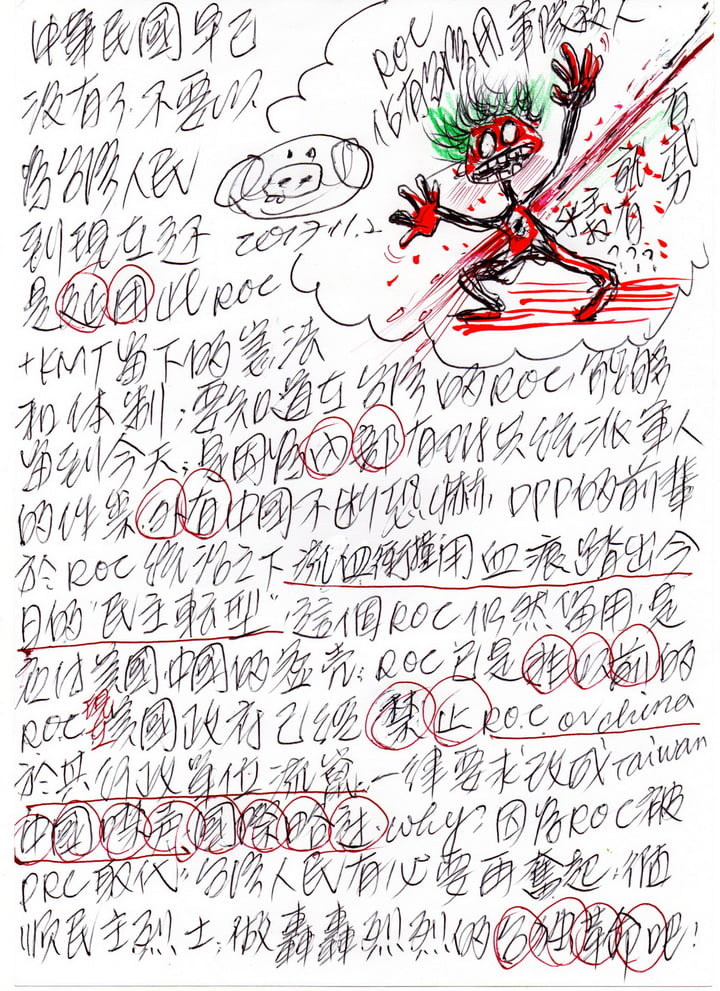 中華民國早已
沒有了,不要以
為台灣人民
到現在還
是延用此ROC
+KMT留下的憲法
和体制;要知道在台灣的ROC能夠
留到今天;是因為內部有
統派軍人
的件
外有中國不斷恐嚇,DPP的前輩
於ROC統治之下流血衝撞用血痕踏出今
日的"民主転型"這個ROC仍然留用,是
應付美國,中國的空壳;ROC已是非以前的
ROC現在美國政府已經禁止R.O.C or china
於其行政單位流
一律要求改成Taiwan
中國
國際
why?因為ROC被
PRC取代;台灣人民有必要再奮起;
民主烈士;做轟轟烈烈的台獨革命吧!
2017.11.2
ROC
佔有台灣用軍隊殺人
有武力
就有
權
???